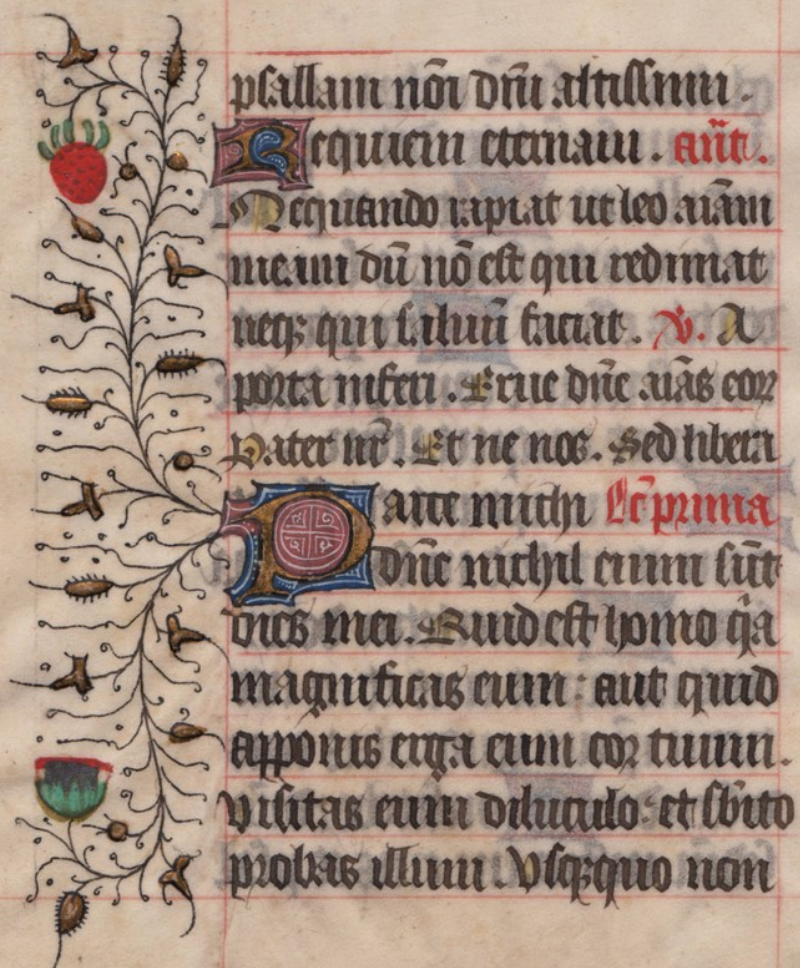 psallam nōi dn̄i altissimi .
Requiem eternam . añt.
Nequando rapiat ut leo aīam
meam dū nō est qui redimat
neqꝫ qui saluū faciat . v. A
porta inferi . Erue dn̄e aīas eoꝝ
Pater nr̄ . Et ne nos . Sed libera
Parce michi lc̄ prima
dn̄e nichil enim sūt
dies mei . Quid est homo q̄a
magnificas eum : aut quid
apponis erga eum cor tuum .
visitas eum diluculo : et sb̄ito
probas illum . Vsqꝫquo non